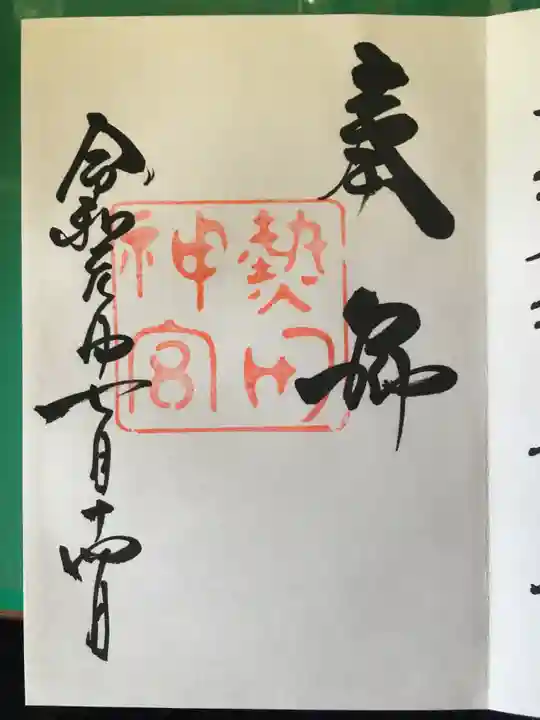 奉拝
熱田
神宮
令和元年七月十四日